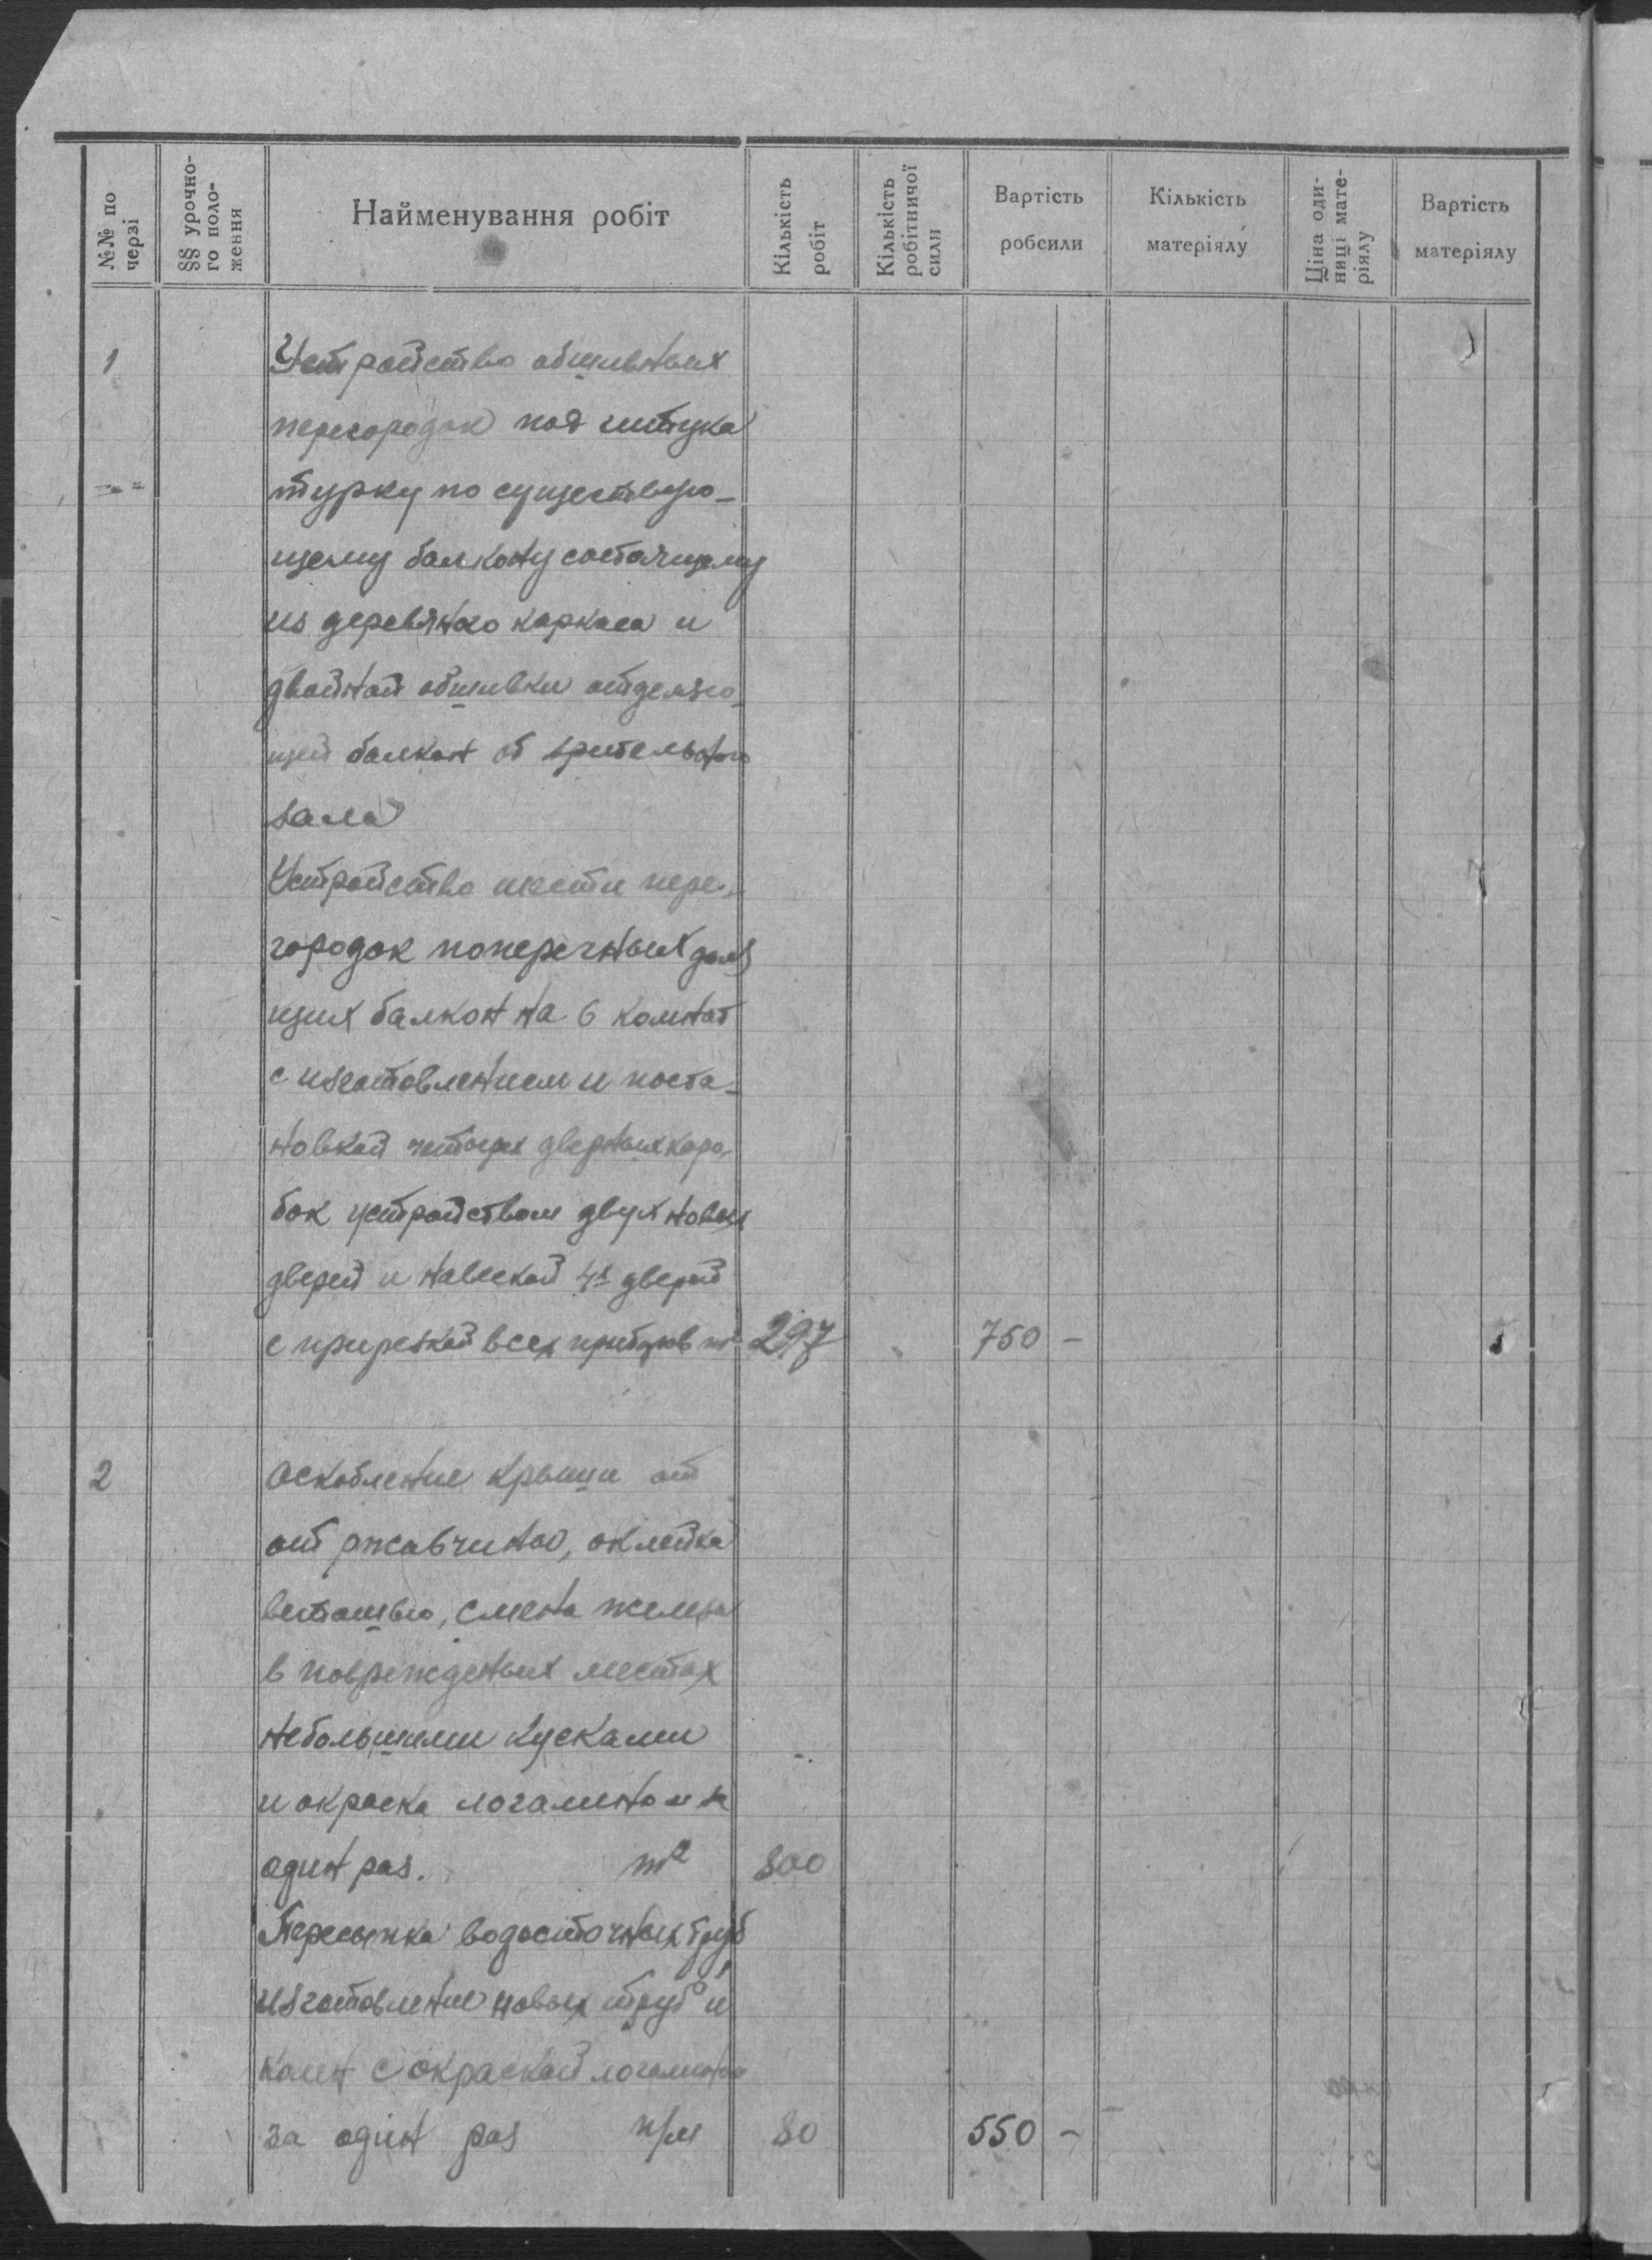 №№ по черзі
§§ урочно-го поло-ження
Найменування робіт
Кількість робіт
Кількість робітничої сили
Вартість робсили
Кількість матеріялу
Ціна оди-ниці мате-ріялу
Вартість матеріялу
1 Устройство обшивных
перегородок под штука
турку по существую-
щему балкону состоящему
из деревяного каркаса и
двойной обшивки отделяю-
щей балкон от зрительного
зала
Устройство шести пере-
городок поперечных
щих балкон на 6 комнат
с изготовлением и поста-
новкой четырех дверных коро-
бок устройством двух новых
дверей и навеской 4х дверей
с прирезкой всех приборов m² 297 750 -
2 Оскобление крыши от
от ржавчины, оклейка
ветошью, смена железа
в поврежденых местах
небольшими кусками
и окраска
один раз. m² 800
водосточных труб
изготовление новых труб и
колен с окраской
за один раз п/м 80 550 -